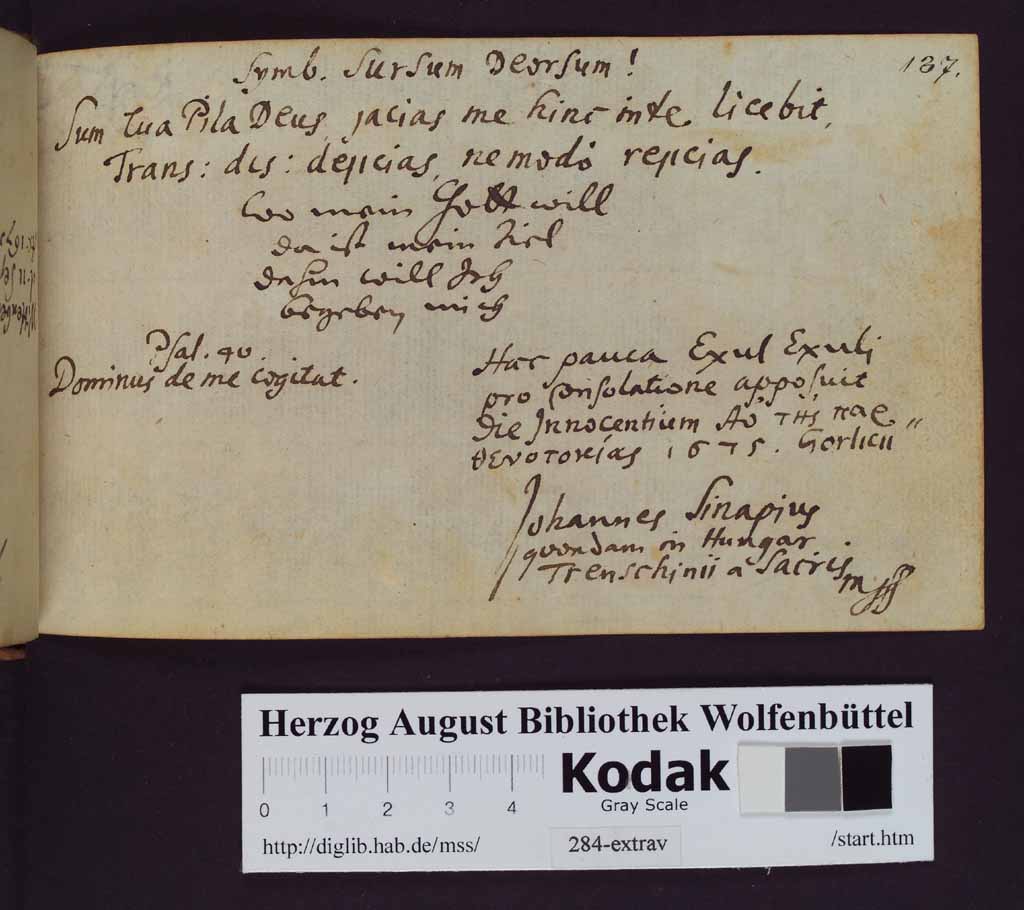 137.
Symb. Sursum Deorsum!
Sum tua Pila Deus, jacias me hinc inde licebit,
Trans: dis: dejicias, ne modò rejicias.
Wo mein Gott will
da ist mein Ziel
dahin will Ich
begeben mich
Psal. 40.
Dominus de me cogitat.
Hæc pauca Exul Exuli
pro consolatione apposuit
die Innocentium Aõ τῆς παρ〃
θενοτοκίας 1675. Gorlicii
Johannes Sinapius
quondam in Hungar.
Trenschinii a Sacris
Herzog August Bibliothek Wolfenbüttel
Kodak
Gray Scale
0 1 2 3 4
http://diglib.hab.de/mss/ 284-extrav /start.htm